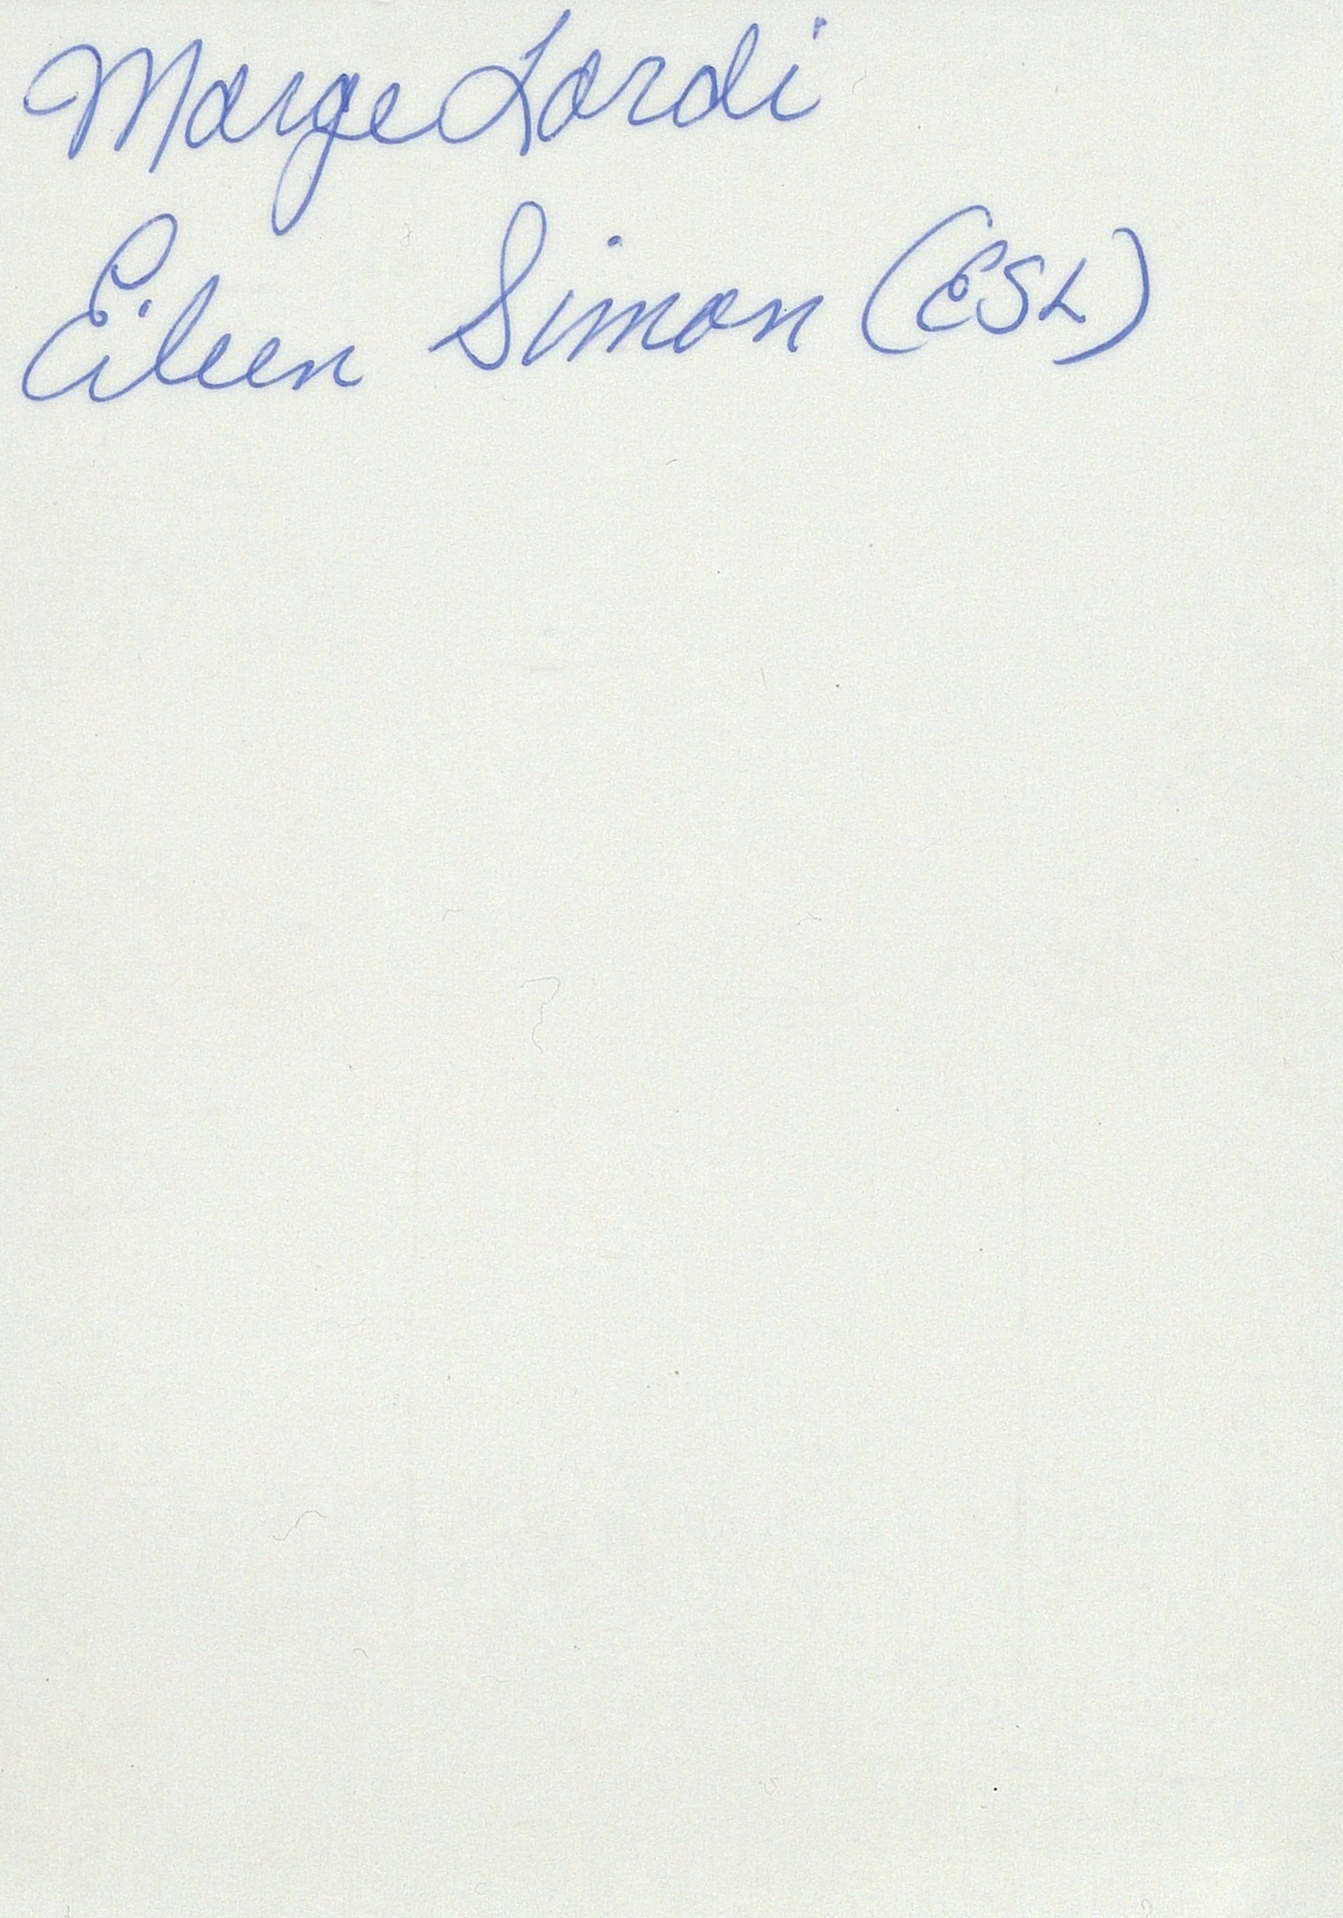 Marge Lordi
Eileen Simon (ESL)